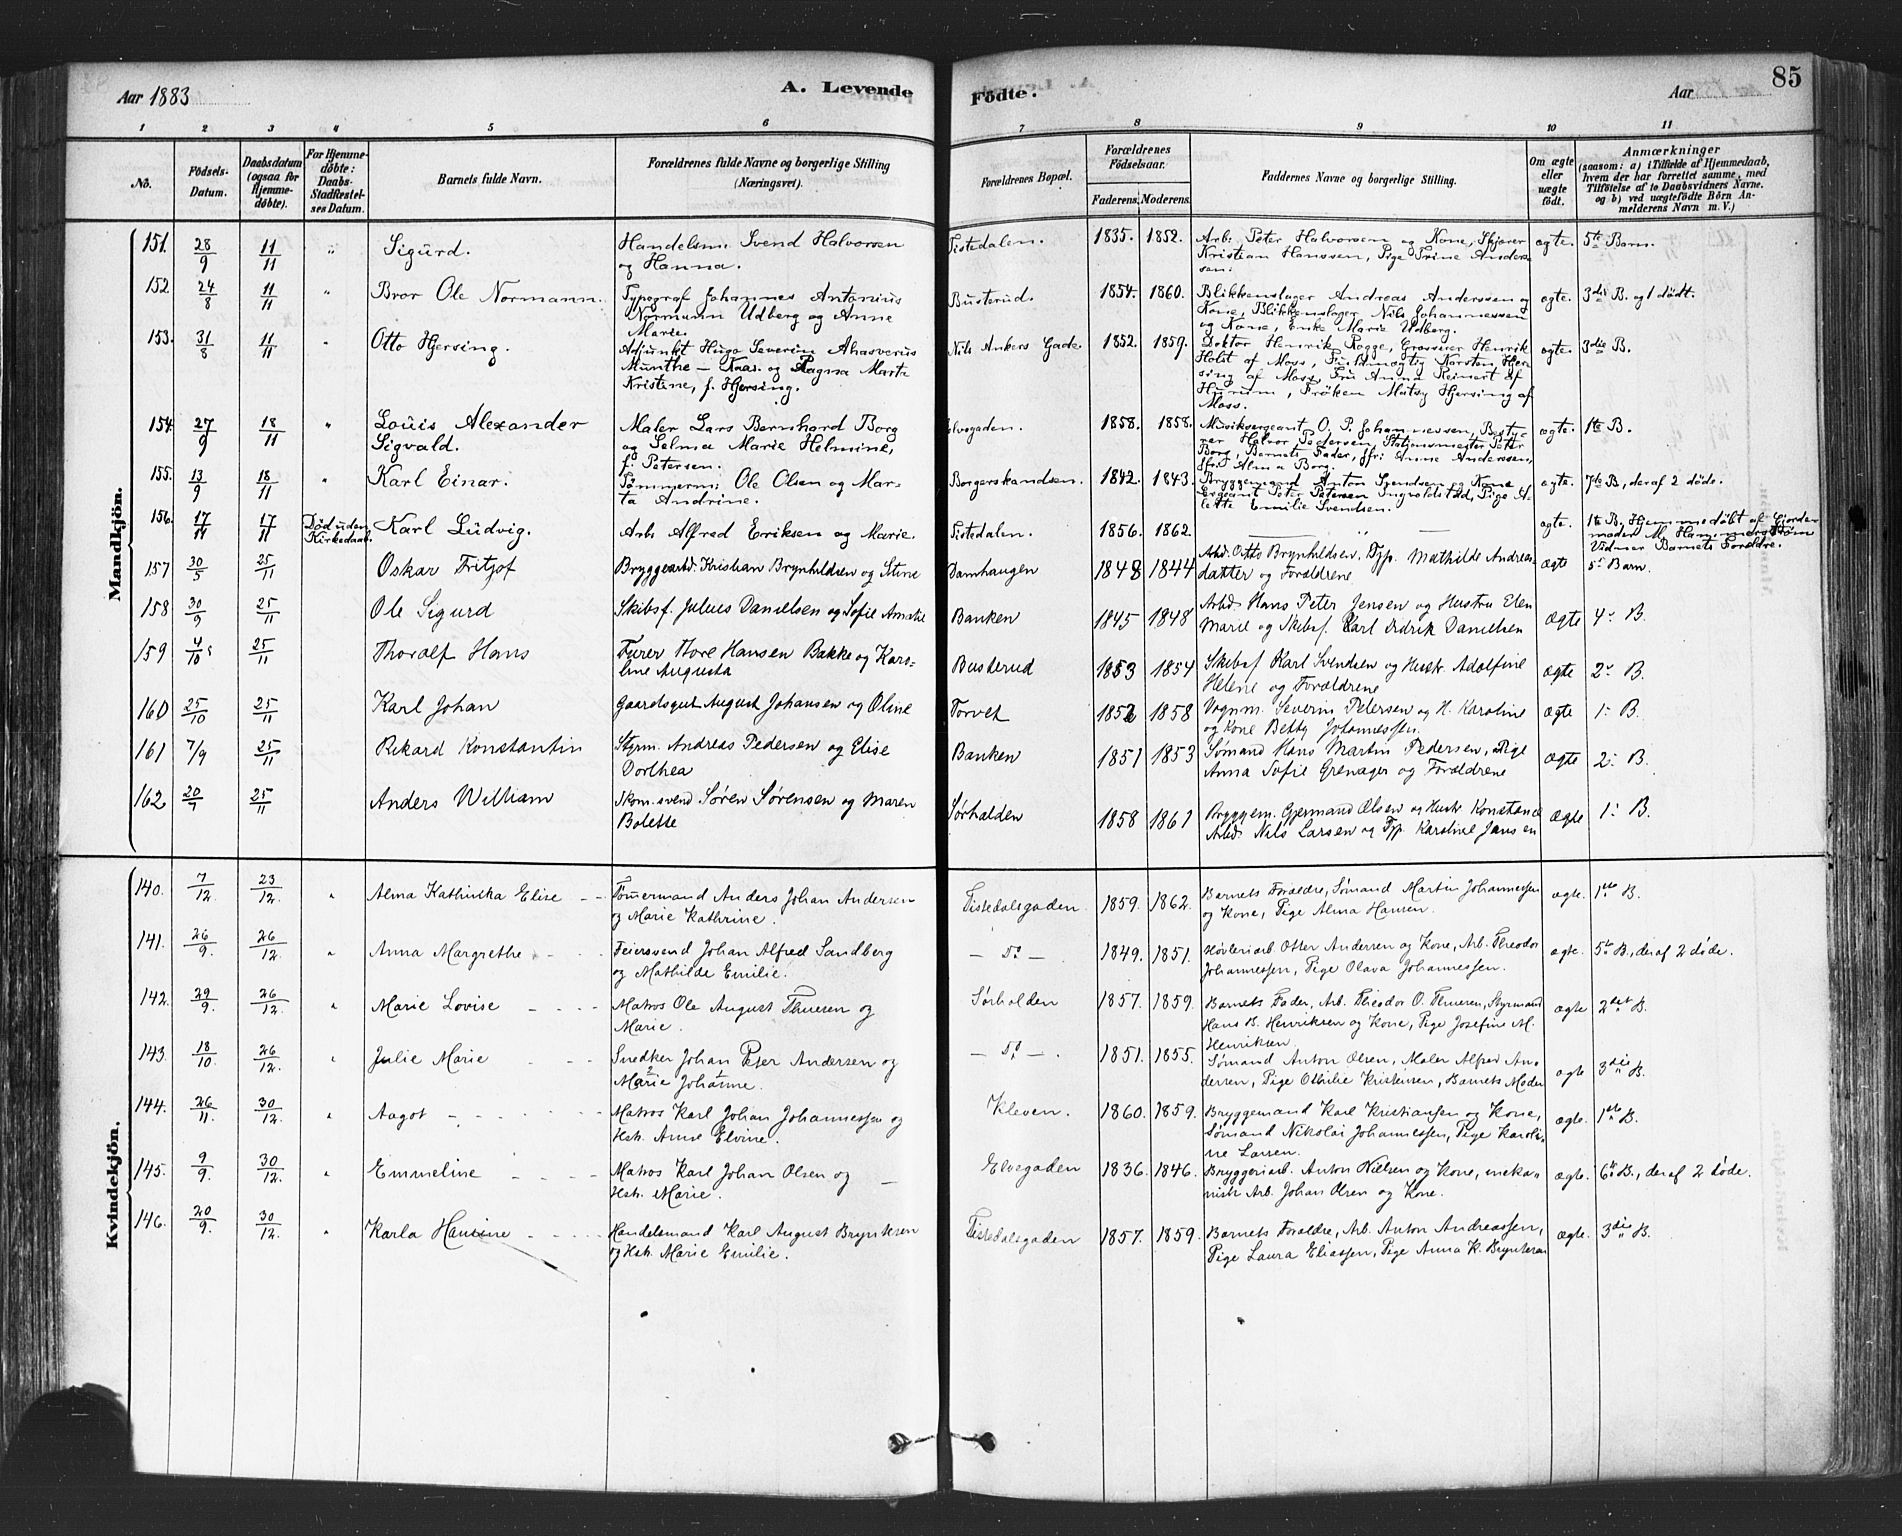 Aar 1883
A. Levende
Födte.
Aar
85
1 2 3 4 5 6 7 8 9 10 11
No.
Födsels-
Datum.
Daabsdatum
(ogsaa for
Hjemme-
döbte).
For Hjemme-
döbte:
Daabs-
Stadfæstel-
ses Datum.
Barnets fulde Navn.
Forældrenes fulde Navne og borgerlige Stilling
(Næringsvei).
Forældrenes Bopæl.
Forældrenes
Födselsaar.
Faderens. Moderens.
Faddernes Navne og borgerlige Stilling.
Om ægte
eller
uægte
födt.
Anmærkninger
(saasom: a) i Tilfælde af Hjemmedaab,
hvem der har forrettet samme, med
Tilföielse af to Daabsvidners Navne.
og b) ved uægtefödte Börn An-
melderens Navn m. V.)
Mandkjön.
151. 28/9 11/11 " Sigurd. Handelsm. Svend Halvorsen Tistedalen. 1835. 1852. Arb. Peter Halvorsen og Kone, Skjører ægte. 5te Barn.
og Hanna. Kristian Hanssen, Pige Trine Anders-
sen.
152. 24/8 11/11 " Bror Ole Normann. Typograf Johannes Antonius Busterud. 1854. 1860. Blikkenslager Andreas Anderssen og ægte. 3die B. og 1 dödt.
Normann Udberg og Anne Kone, Blikkenslager Nils Johannessen
Marie. og Kone, Enke Marie Udberg.
153. 31/8 11/11 " Otto Hjersing. Adjunkt Hugo Severin Ahasverus Nils Ankers Gade. 1852. 1859. Doktor Henrik Rogge, Grosserer Henrik ægte. 3die B.
Munthe - Kaas. og Ragna Marte Holst af Moss, Fuldmægtig Karsten Hjer-
Kristine, f. Hjersing. sing af Moss, Fru Anna Reinert af
Hurum, Fröken Matsy Hjersing af
Moss.
154. 27/9 18/11 " Louis Alexander Maler Lars Bernhard Borg Elvegaden. 1858. 1858. Musiksergeant O. P. Johannessen, Besty- ægte. 1te B.
Sigvald. og Selma Marie Helmine, rer Halvor Pedersen, Stationsmester Peter
f. Petersen. Borg, Barnets Fader, Frk. Anne Anderssen,
Frk. Alma Borg.
155. 13/9 18/11 " Karl Einar. Tömmerm. Ole Olsen og Mar- Borgerskandsen. 1842. 1843. Bryggemand Anton Svendsen og Kone ægte. 7de B., deraf 2 döde.
ta Andrine. Sergeant Peter Petersen Ingvoldstad, Pige A-
lette Emilie Svendsen.
156. 17/11 17/11 Död uden Karl Ludvig. Arb. Alfred Eriksen og Marie. Tistedalen. 1856. 1862. — — ægte. 1te B. Hjemmedöbt af Gjorder
Kirkedaab. moder M. Hammerström
Vidner Barnets Foreldre.
157 30/5 25/11 Oskar Fritjof Bryggearbd. Kristian Brynhildsen og Stine Damhaugen 1848 1844 Arbd. Otto Brynhildsen, Fyp. Mathilde Andreas- ægte 5. Barn.
datter og Forældrene
158 30/9 25/11 Ole Sigurd Skibsf. Julius Danielsen og Sofie Amalie Banken 1845 1848 Arbd. Hans Peter Jensen og Hustru Elen ægte 4. B.
Marie og Skibsf. Karl Didrik Danielsen
159 4/10 25/11 Thoralf Hans Furer Thore Hansen Bakke og Karo- Busterud 1853 1854 Skibsf. Karl Svendsen og Hustr. Adolfine ægte 2. B.
line Augusta Helene og Forældrene
160 25/10 25/11 Karl Johan Gaardsgut August Johansen og Oline Torvet 1852 1858 Vognm. Severin Petersen og H. Karoline ægte 1. B.
og Kone Betty Johannessen.
161 7/9 25/11 Rikard Konstantin Styrm. Andreas Pedersen og Elise Banken 1851 1853 Sømand Hans Martin Pedersen, Pige ægte 2. B.
Dorthea Anna Sofie Grenager og Forældrene
162 20/7 25/11 Anders William Skom.svend Sören Sörensen og Maren Sörhalden 1858 1861 Bryggem. Gjermand Olsen og Hustr. Konstance ægte 1. B.
Bolette Arbd. Nils Larsen og Fyp. Karoline Jansen
Kvindekjön.
140. 7/12 23/12 " Alma Kathinka Elise Tömermand Anders Johan Andersen Tistedalsgaden. 1859. 1862. Barnets Foreldre, Sömand Martin Johannessen ægte. 1ste B.
og Marie Kathrine. og Kone, Pige Alma Hansen.
141. 26/9. 26/12. " Anna Margrethe Feiersvend Johan Alfred Sandberg — Do — 1849. 1851. Hövleriarb. Otter Andersen og Kone, Arb. Theodor ægte. 5te B., deraf 2 döde.
og Mathilde Emilie. Johannessen, Pige Olava Johannessen.
142. 29/9. 26/12. " Marie Lovise Matros Ole August Thuesen og Sörhalden 1857. 1859. Barnets Fader, Arb. Theodor O. Thuesen, Styrmand ægte 2det B.
Marie. Hans B. Henriksen og Kone, Pige Josefine M.
Henriksen.
143. 18/10. 26/12. " Julie Marie Snedker Johan Peter Andersen og — Do — . 1851. 1855. Sömand Anton Olsen, Maler Alfred An- ægte 3die B.
Marie Johanne. dersen, Pige Othilie Kristensen, Barnets Moder
144. 26/11. 30/12. " Aagot Matros Karl Johan Johannessen og Kleven. 1860. 1859. Bryggemand Karl Kristiansen og Kone, ægte. 1ste B.
Hst. Anne Elvine. Sömand Nikolai Johannessen, Pige Karoli-
ne Larsen.
145. 9/9. 30/12. " Emmeline Matros Karl Johan Olsen og Elvegaden 1836. 1846. Bryggeriarb. Anton Nielsen og Kone, meka- ægte. 6te B., deraf 2 döde.
Hst. Marie. nisk Arb. Johan Olsen og Kone.
146. 20/9. 30/12. " Karla Hansine Handelsmand Karl August Bryniksen Tistedalsgaden 1857. 1859. Barnets Foreldre, Arb. Anton Andreassen, ægte. 3die B.
og Hst. Marie Emilie. Pige Laura Eliassen, Pige Anna K.